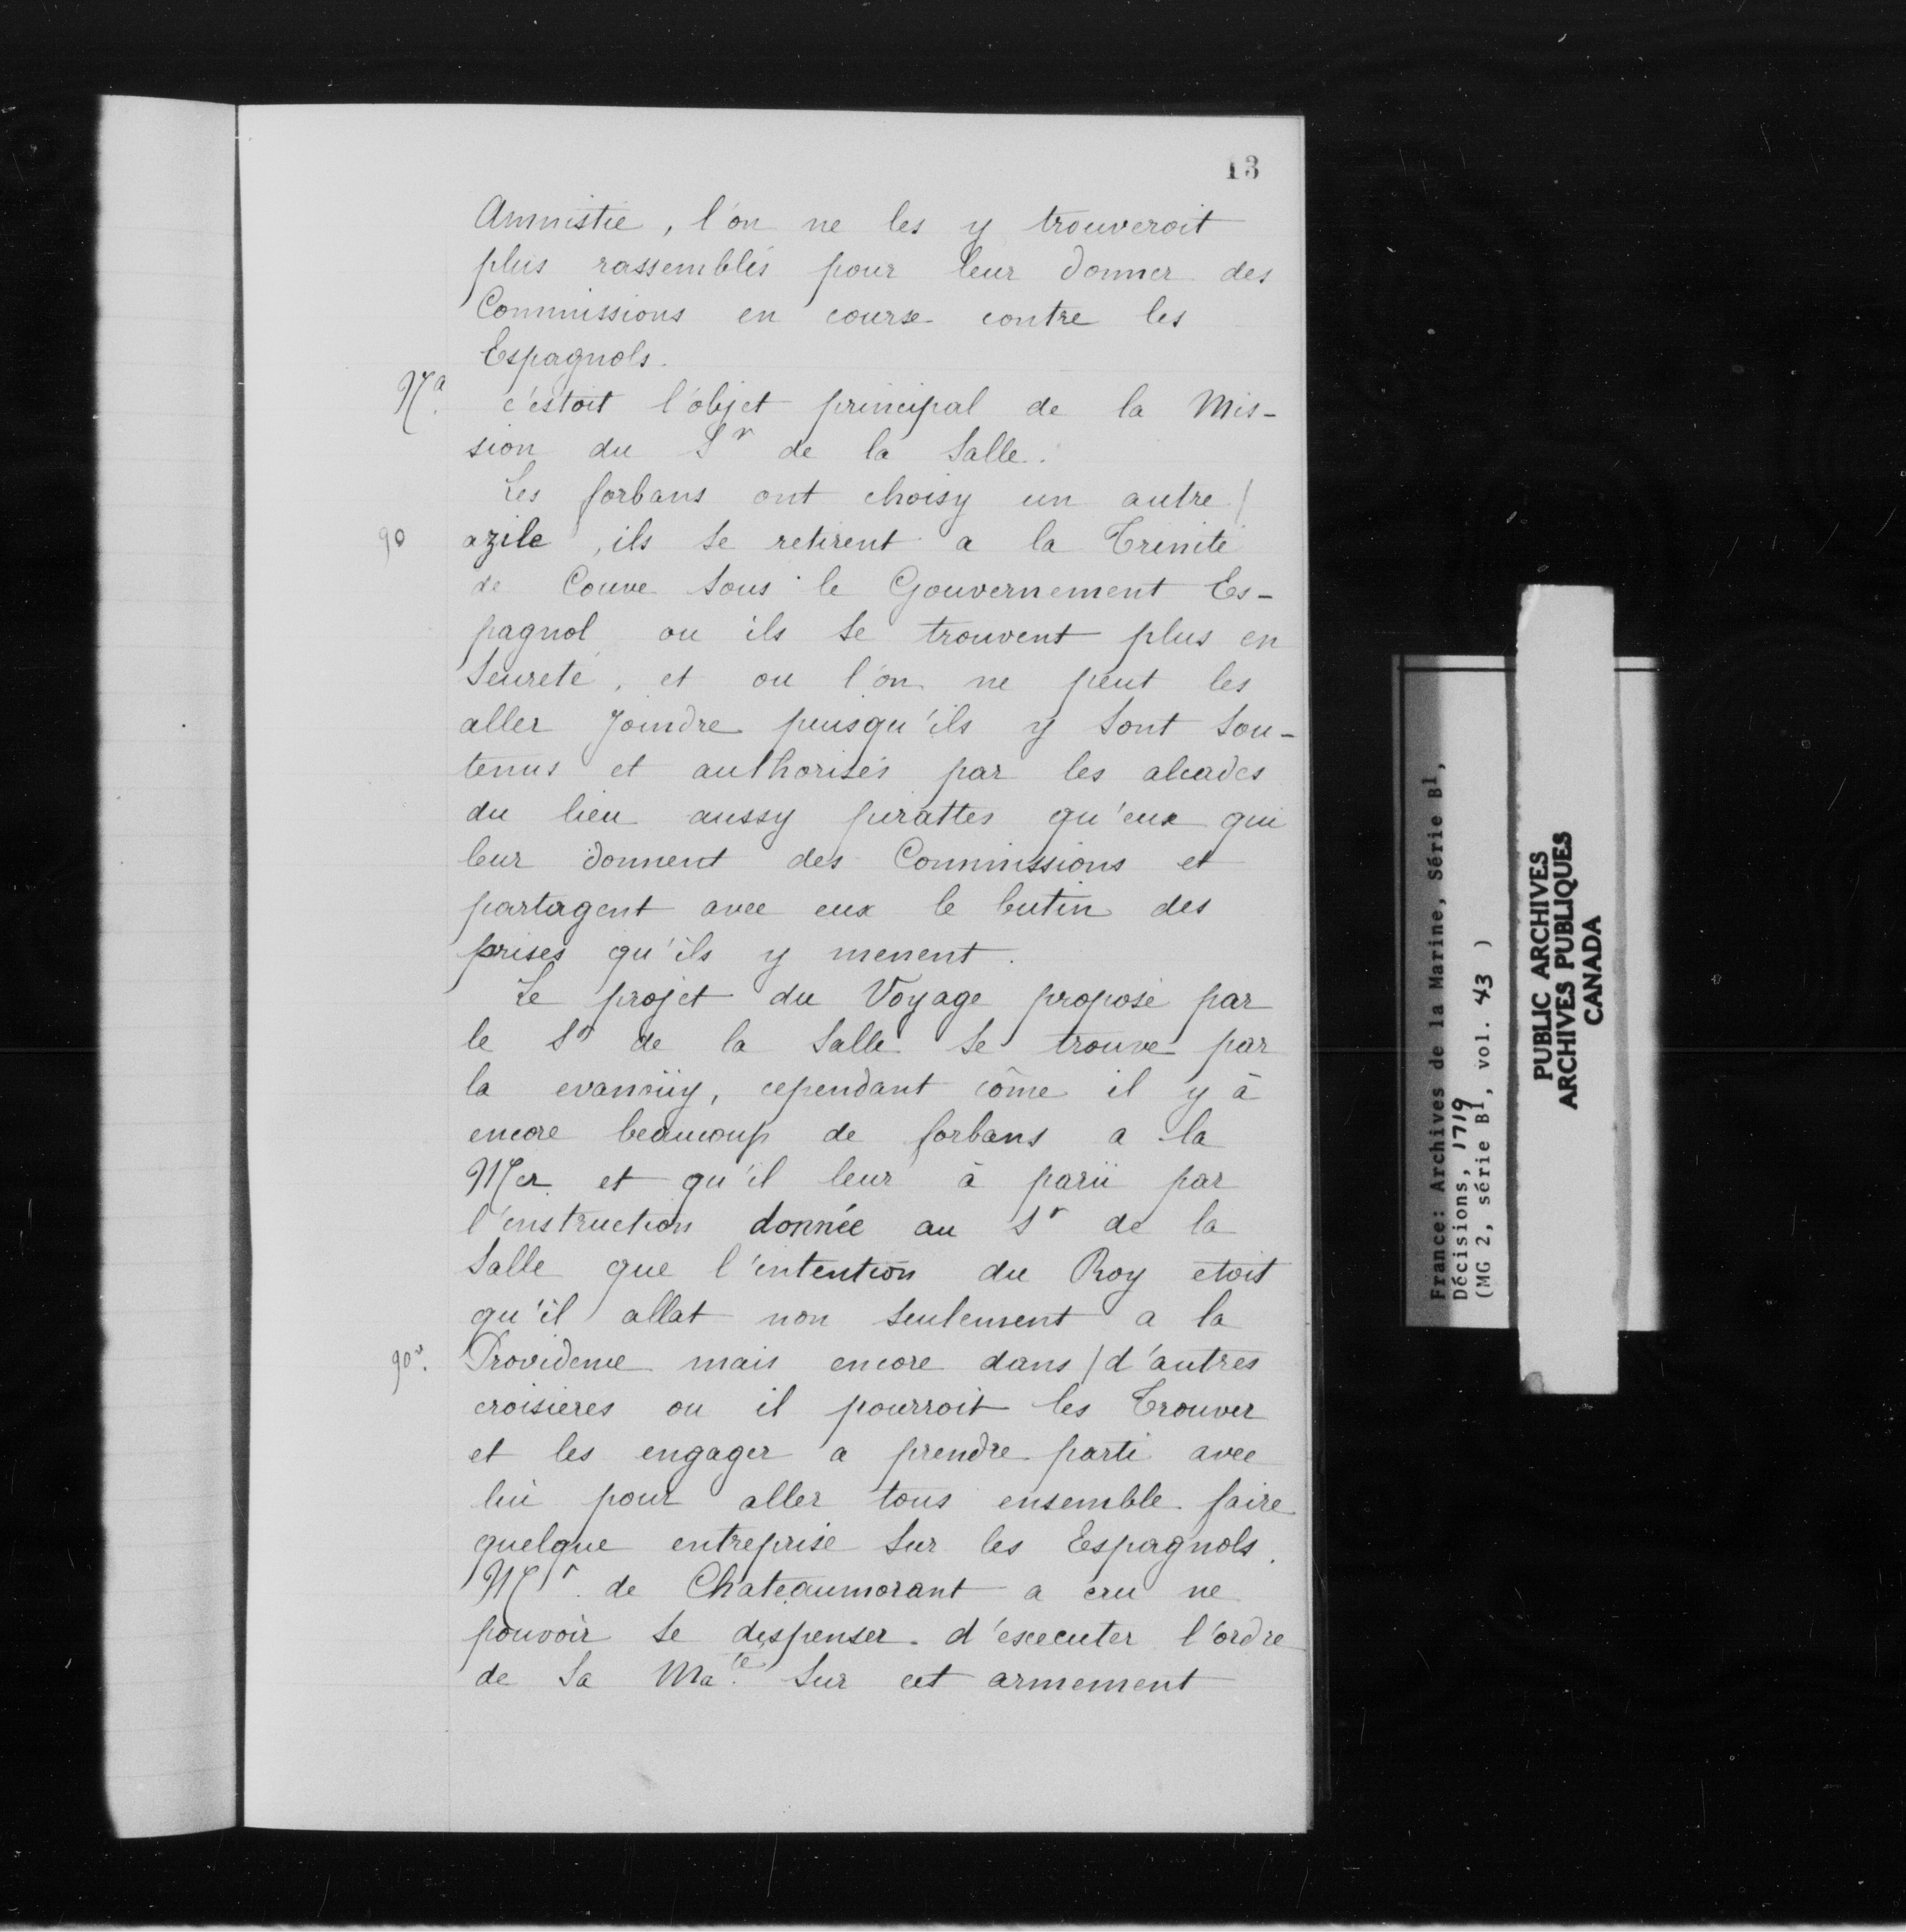 13
Amnistie, l'on ne les y trouveroit
plus rassemblés pour leur donner des
Commissions en course contre les
Espagnols.
Na. c'estoit l'objet principal de la Mis-
sion du Sr de la Salle.
Les forbans ont choisy un autre /
90 azile, ils se retirent a la Trinité
de Couve sous le Gouvernement Es-
pagnol ou ils se trouvent plus en
seureté, et ou l'on ne peut les
aller joindre puisqu'ils y sont sou-
tenus et authorisés par les alcades
du lieu aussy pirattes qu'eux qui
leur donnent des Commissions et
partagent avec eux le butin des
prises qu'ils y menent.
Le projet du Voyage proposé par
le Sr de la Salle se trouve par
la evanoüy, cependant côme il y à
encore beaucoup de forbans a la
Mer et qu'il leur à parü par
l'instruction donnée au Sr de la
Salle que l'intention du Roy etoit
qu'il allat non seulement a la
90v. Providence mais encore dans / d'autres
croisieres ou il pourroit les Trouver
et les engager a prendre parti avec
lui pour aller tous ensemble faire
quelque entreprise sur les Espagnols.
Mr. de Chateaumorant a cru ne
pouvoir se dispenser d'executer l'ordre
de Sa Maté. sur cet armement
France: Archives de la Marine, Série B1,
Décisions, 1719
(MG 2, série B1, vol. 43 )
PUBLIC ARCHIVES
ARCHIVES PUBLIQUES
CANADA